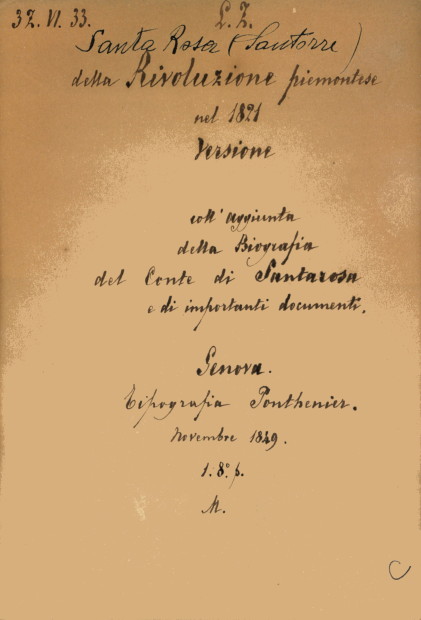 37. VI. 33. L. Z.
Santa Rosa (Santorre)
della Rivoluzione piemontese
nel 1821
Versione
coll' aggiunta
della Biografia
del Conte di Santarosa
e di importanti documenti.
Genova.
Tipografia Ponthenier.
Novembre 1849.
1. 8° p.
M.
C